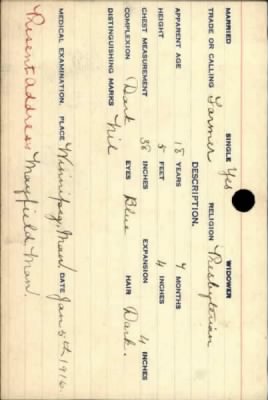 MARRIED SINGLE Yes WIDOWER
TRADE OR CALLING Farmer RELIGION Presbyterian
DESCRIPTION.
APPARENT AGE 18 YEARS 7 MONTHS
HEIGHT 5 FEET 4 INCHES
CHEST MEASUREMENT 38 INCHES EXPANSION 4 INCHES
COMPLEXION Dark EYES Blue HAIR Dark.
DISTINGUISHING MARKS Nil
MEDICAL EXAMINATION. PLACE Winnipeg, Man. DATE Jan 5th 1916.
Present address Mayfield Man.